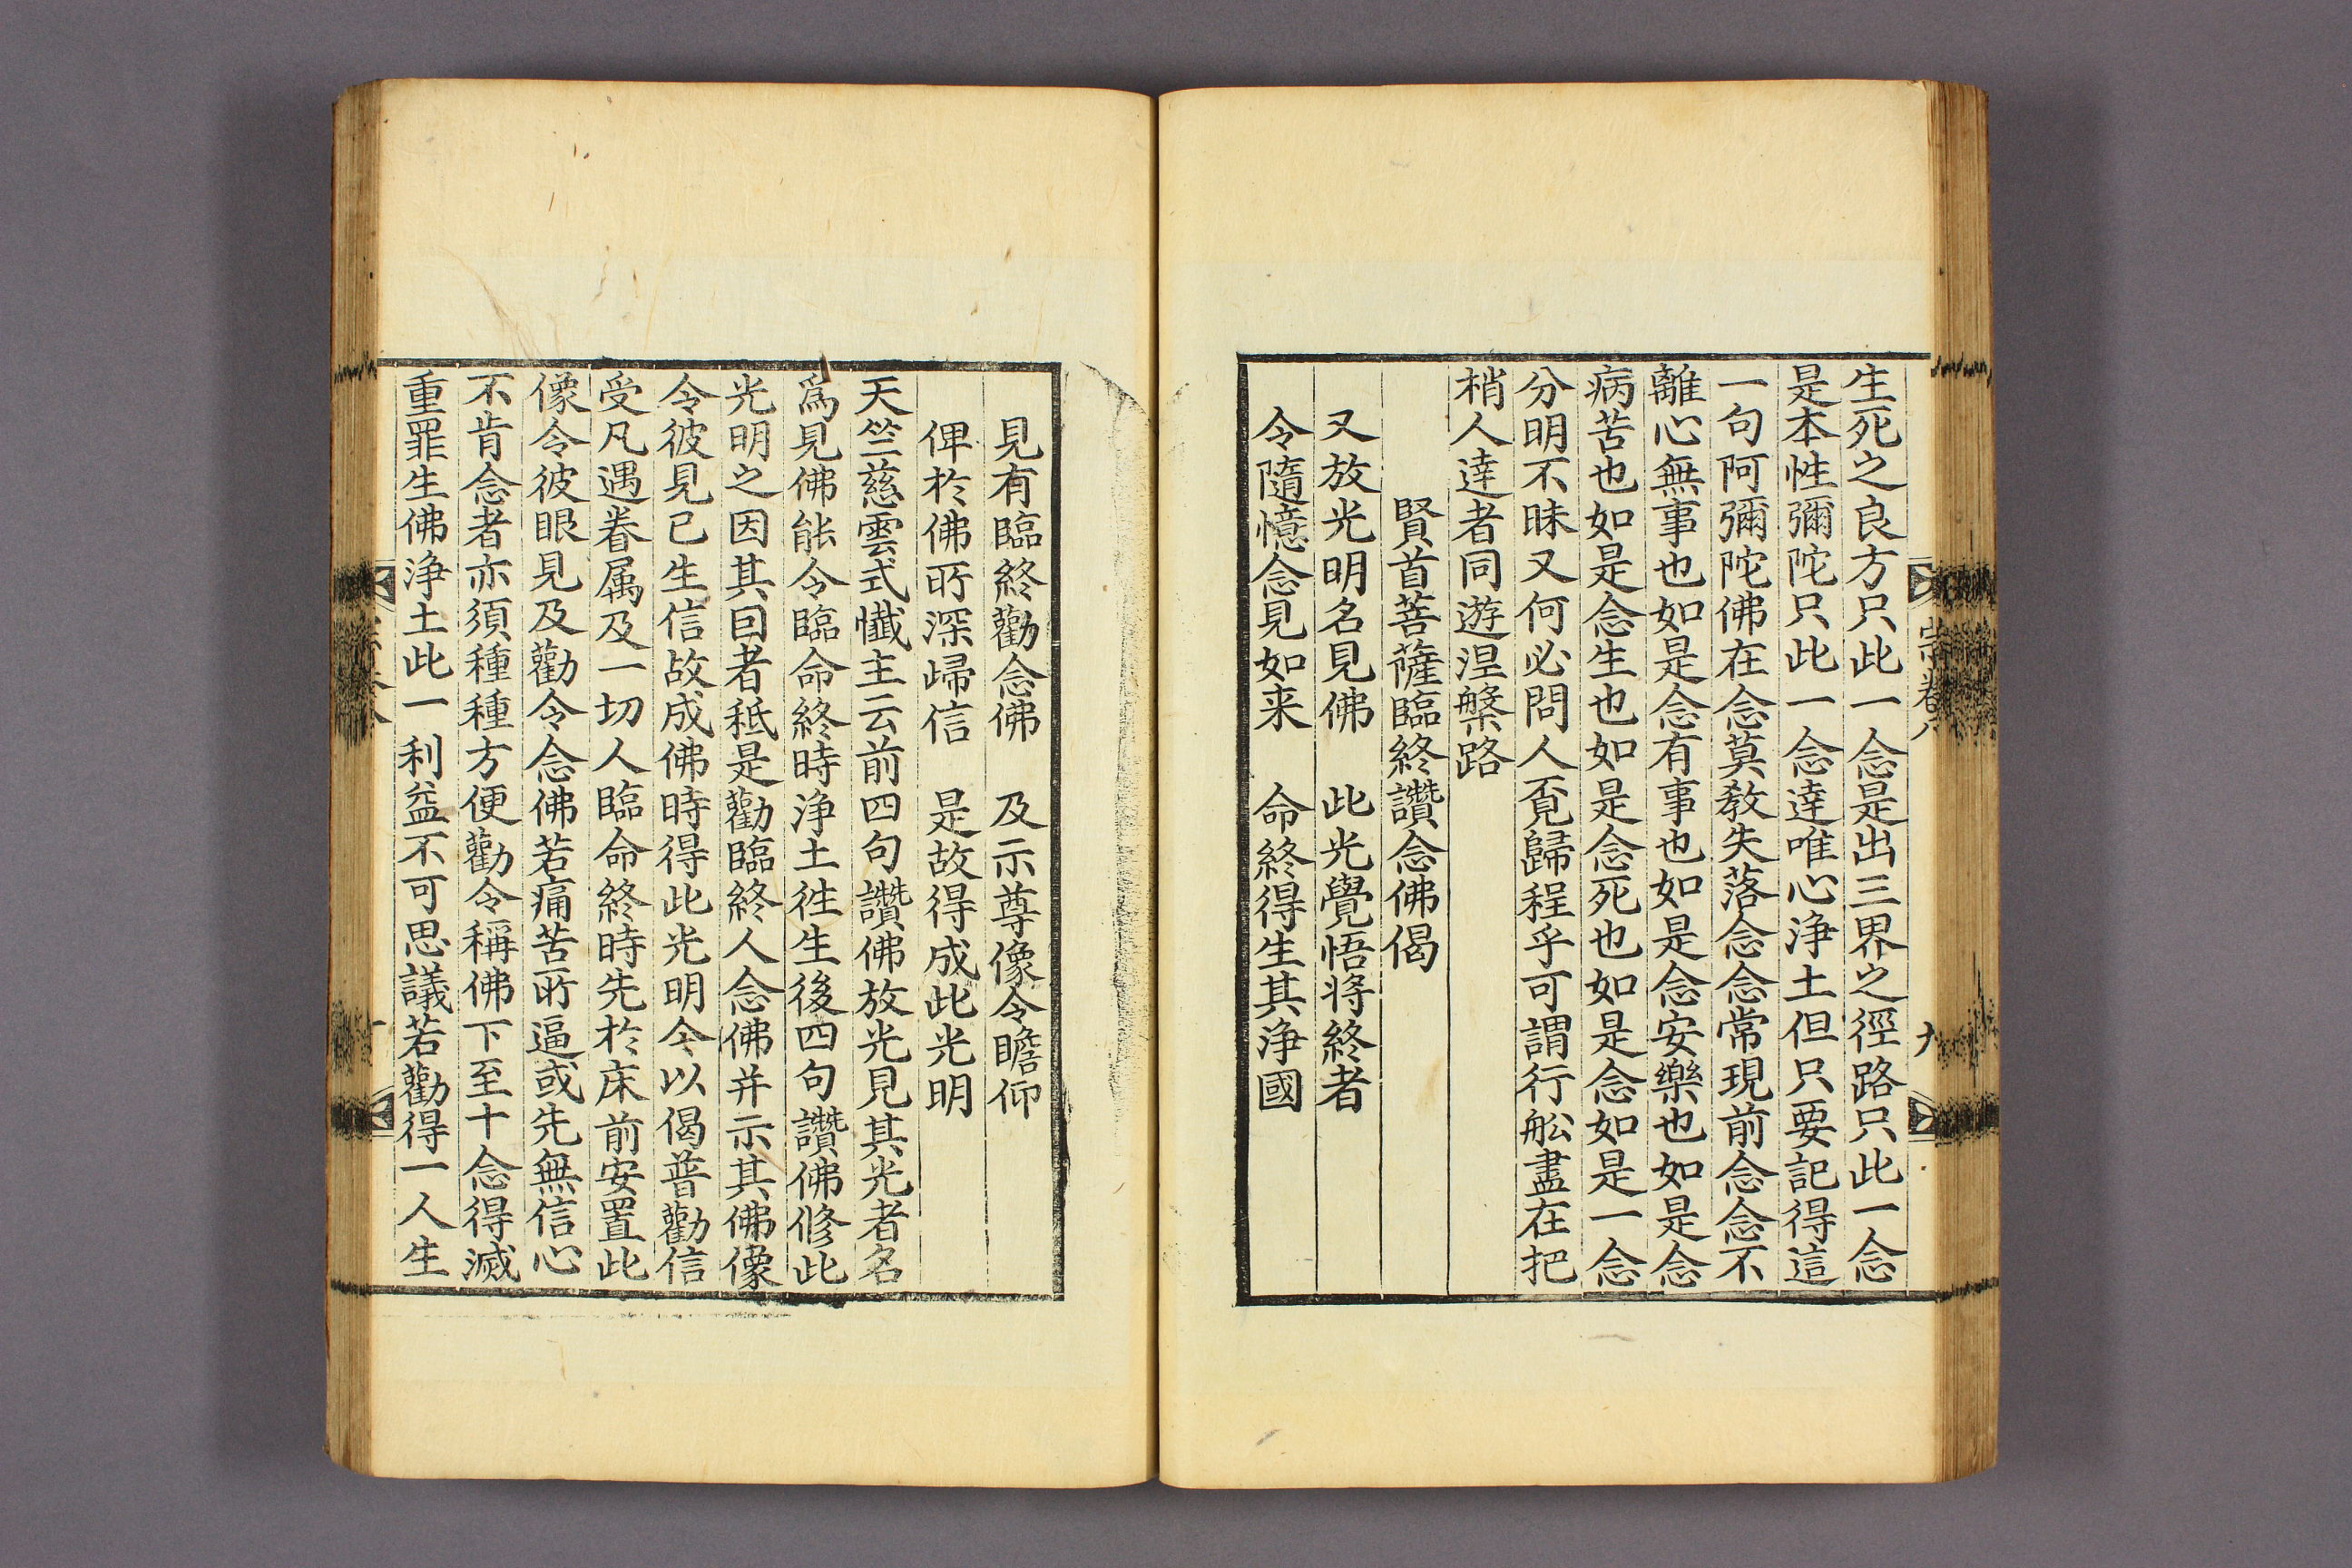 生死之良方只此一念是出三界之徑路只此一念
是本性彌陀只此一念達唯心浄土但只要記得這
一句阿彌陀佛在念莫教失落念念常現前念念不
離心無事也如是念有事也如是念安樂也如是念
病苦也如是念生也如是念死也如是念如是一念
分明不昧又何必問人覔歸程乎可謂行舩盡在把
梢人達者同遊涅槃路
賢首菩薩臨終讚念佛偈
又放光明名見佛　此光覺悟將終者
令隨憶念見如来　命終得生其浄國
見有臨終勸念佛　及示尊像令瞻仰
俾於佛所深歸信　是故得成此光明
天竺慈雲式懺主云前四句讚佛放光見其光者名
爲見佛能令臨命終時浄土徃生後四句讚佛修此
光明之因其曰者秪是勸臨終人念佛并示其佛像
令彼見已生信故成佛時得此光明今以偈普勸信
受凡遇眷属及一切人臨命終時先於床前安置此
像令彼眼見及勸令念佛若痛苦所逼或先無信心
不肯念者亦須種種方便勸令稱佛下至十念得滅
重罪生佛浄土此一利益不可思議若勸得一人生
宗卷八
九